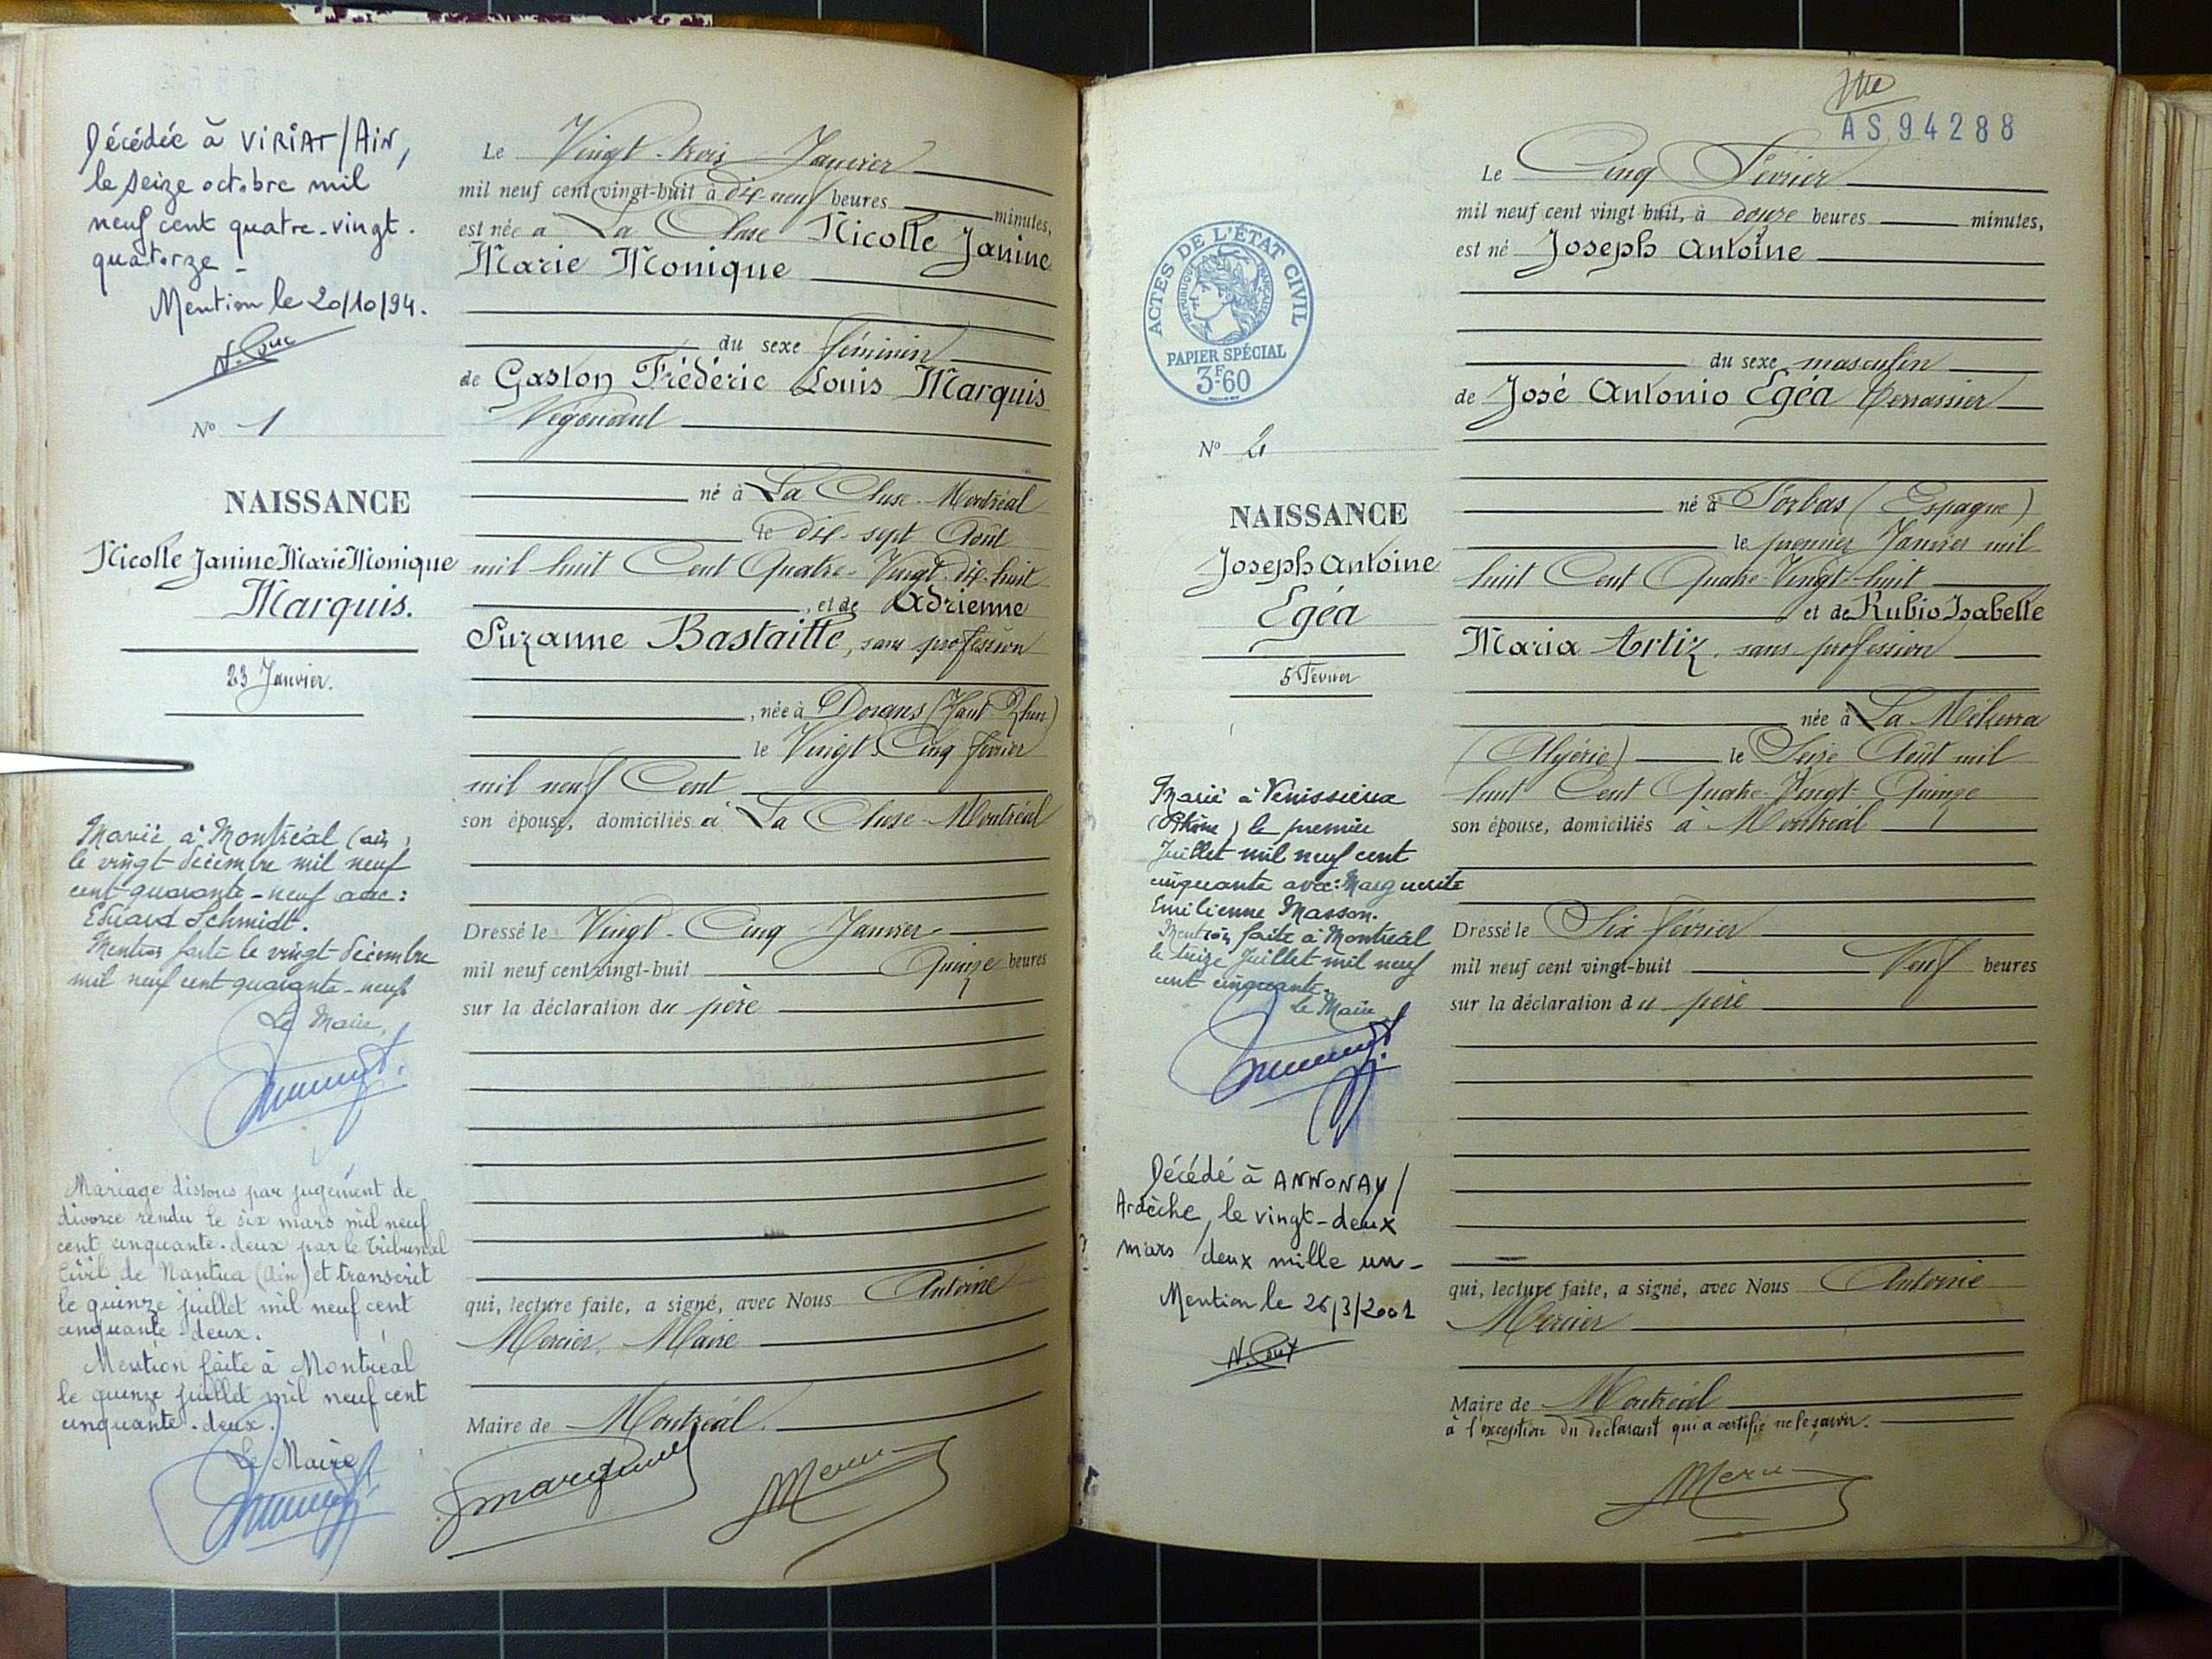 Décédée à VIRIAT/AIN,
le seize octobre mil
neuf cent quatre-vingt-
quatorze -
Mention le 20/10/94.
Nº 1
NAISSANCE
Nicolle Janine Marie Monique
Marquis.
23 Janvier.
Marié à Montréal (ain)
le vingt décembre mil neuf
cent quarante-neuf avec:
Eduard Schmidt.
Mention faite le vingt décembre
mil neuf cent quarante-neuf
Le Maire,
Mariage dissous par jugement de
divorce rendu le six mars mil neuf
cent cinquante-deux par le Tribunal
Civil de Nantua (Ain) et transcrit
le quinze juillet mil neuf cent
cinquante-deux.
Mention faite à Montréal
le quinze juillet mil neuf cent
cinquante-deux.
Le Maire
Le Vingt-trois Janvier
mil neuf cent vingt-huit à dix-neuf heures minutes,
est née à La Cluse Nicolle Janine
Marie Monique
du sexe féminin
de Gaston Frédéric Louis Marquis
Négociant
né à La Cluse-Montréal
le dix-sept Août
mil huit Cent Quatre-Vingt-dix-huit
, et de Adrienne
Suzanne Bastaille, sans profession
, née à Dorans (Haut-Rhin)
le Vingt-Cinq février
mil neuf Cent
son épouse, domiciliés à La Cluse-Montréal
Dressé le Vingt-Cinq Janvier
mil neuf cent vingt-huit Quinze heures
sur la déclaration du père
qui, lecture faite, a signé, avec Nous Antoine
Mercier, Maire
Maire de Montréal.
AS94288
ACTES DE L'ÉTAT CIVIL
RÉPUBLIQUE FRANÇAISE
PAPIER SPÉCIAL
3F60
Nº 2
NAISSANCE
Joseph Antoine
Egéa
5 Février
Marié à Venissieux
(Rhône) le premier
Juillet mil neuf cent
cinquante avec: Marguerite
Emilienne Masson.
Mention faite à Montréal
le treize Juillet mil neuf
cent cinquante.
Le Maire
Décédé à ANNONAY/
Ardèche, le vingt-deux
mars deux mille un-
Mention le 26/3/2001
Le Cinq Février
mil neuf cent vingt-huit, à douze heures minutes,
est né Joseph Antoine
du sexe masculin
de José Antonio Egéa terrassier
né à Sorbas (Espagne)
le premier Janvier mil
huit Cent Quatre-Vingt-huit
et de Rubio Isabelle
Maria Artiz, sans profession
née à La Mékerra
(Algérie) le Seize Août mil
huit Cent Quatre-Vingt-Quinze
son épouse, domiciliés à Montréal
Dressé le Six février
mil neuf cent vingt-huit Neuf heures
sur la déclaration du père
qui, lecture faite, a signé, avec Nous Antoine
Mercier
Maire de Montréal
à l'exception du déclarant qui a certifié ne le savoir.